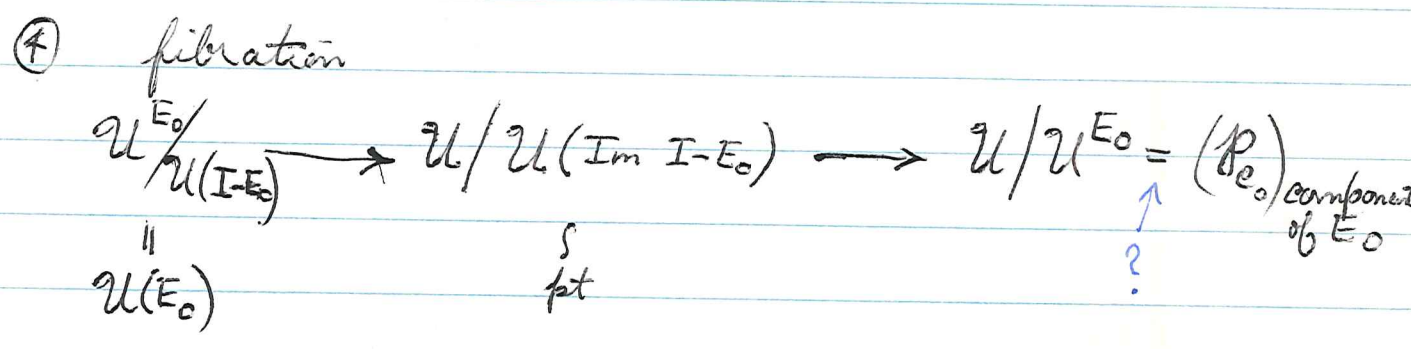 ④ fibration
𝒰^{E₀}/𝒰(I-E₀) ⟶ 𝒰/𝒰(Im I-E₀) ⟶ 𝒰/𝒰^{E₀} = (𝒫_{e₀}) component of E₀
|| ∫ ↑
𝒰(E₀) pt ?